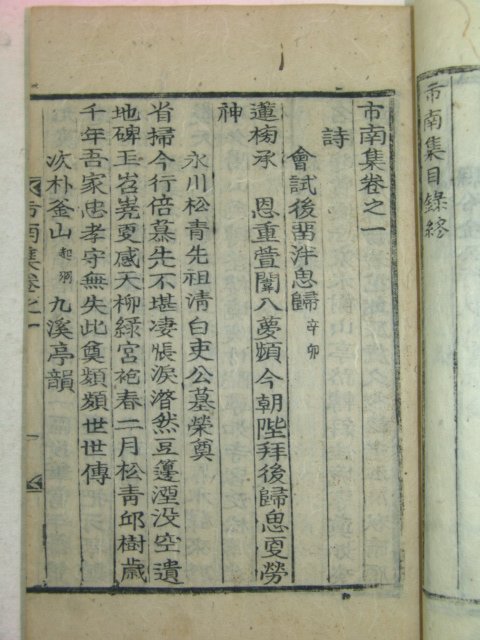 市南集目錄終
市南集卷之一
詩
會試後留泮思歸 辛卯
蓮榜承 恩重萱闈入夢頻今朝陛拜後歸思更勞
神
永川松青先祖清白吏公墓榮奠
省掃今行倍慕先不堪悽悵淚潸然豆籩湮没空遺
地碑玉岧嶤更感天柳綠宮袍春二月松靑邱樹歲
千年吾家忠孝守無失此奠願額世世傳
次朴釜山 起弼 九溪亭韻
市南集卷之一
一